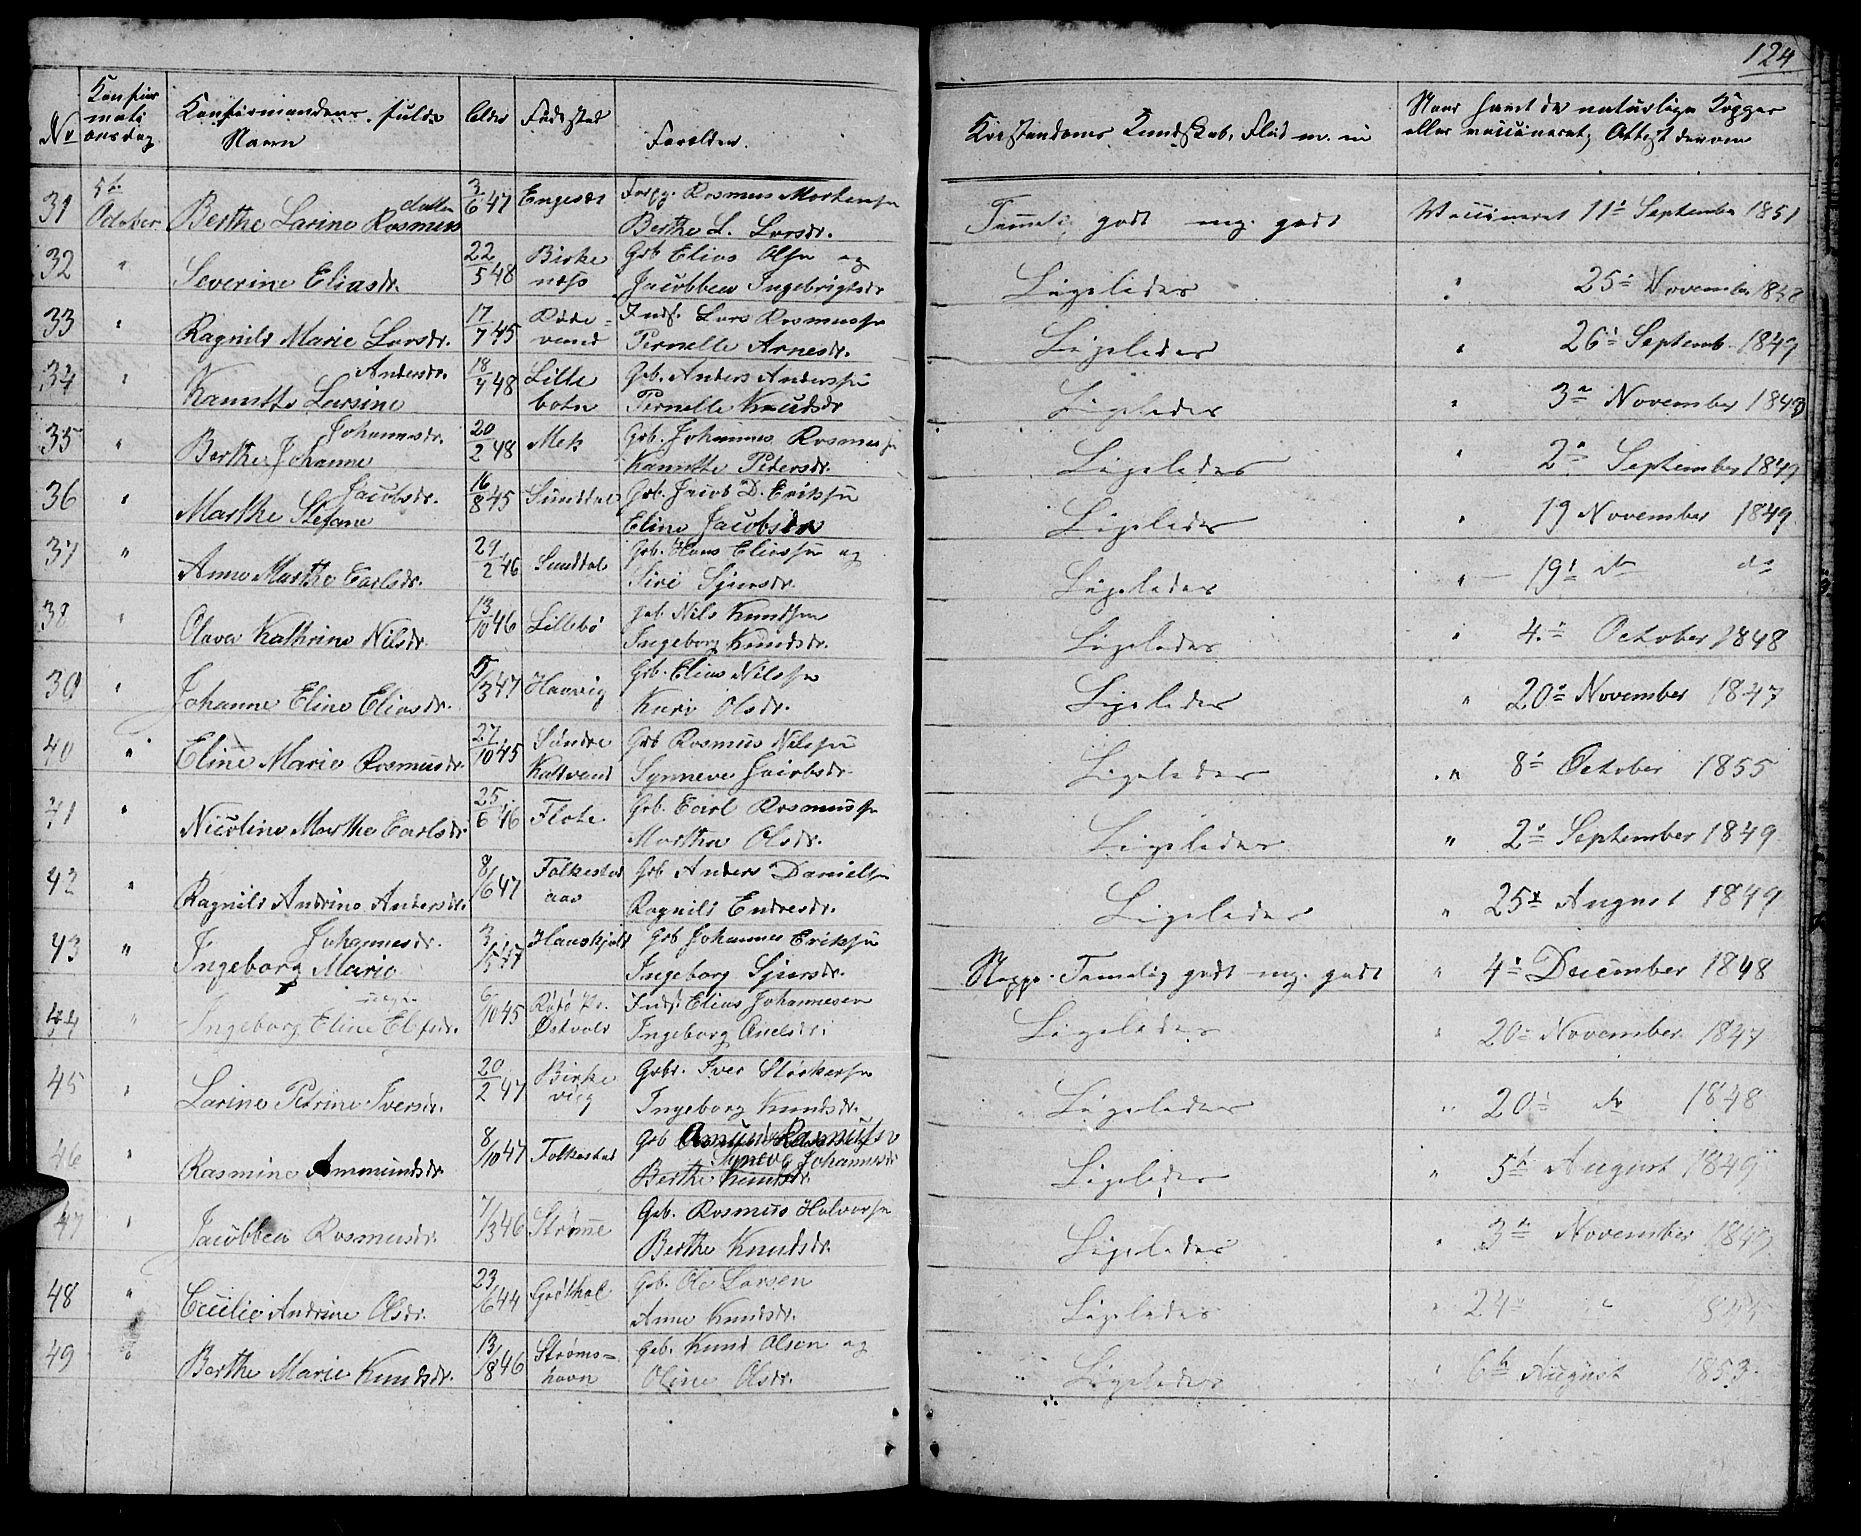 124
No
Konfirmationsdag
Konfirmandens fulde Navn
Alder
Fødested
Forældre.
Kristendoms Kundskab, Flid m. m
Naar havt de naturlige Kopper eller vaccineret; Attest derom
31 5te October Berthe Larine Rasmusdatter 3/6 47 Engesæt Rasmus Mortensen Berthe L. Larsdr. Temmelig godt mg. godt Vaccineret 11te September 1851
32 " Severine Eliasdr. 22/5 48 Birkenæss Gbr Elias Olsen og Jacobbea Ingebrigtsdr " 25de November 1848
Ligeledes
33 " Ragnild Marie Larsdr. 17/7 45 Indf. Lars Rasmussen Pernelle Arnesdr. Ligeledes " 26de Septemb. 1849
34 " Larsine Andersdr. 18/7 48 Lillebotn Gbr. Anders Anderssen Pernelle Knudsdr Ligeledes " 3die November 1849
35 " Berthe Johanne Johannesdr. 20/2 48 Mek Gbr. Johannes Rasmussen Pedersdr. Ligeledes " 2den September 1849
36 " Marthe Stefane Jacobsdr. 16/8 45 Sunddal Gbr. Jacob D. Eriksen Eline Jacobsdr Ligeledes " 19 November 1849
37 " Anne Marthe Carlsdr. 29/2 46 Sunddal Gbr. Hans Eliassen og Siri Sjursdr. Ligeledes " 19de do do
38 " Olava Kathrine Nilsdr. 13/10 46 Lillebø Gbr. Nils Knudsen Ingeborg Knudsdr. Ligeledes " 4de October 1848
39 " Johanne Eline Eliasdr. 5/3 47 Haavig Gbr. Elias Nilssen Kari Olsdr. Ligeledes " 20de November 1847
40 " Eline Marie Rasmusdr. 27/10 45 Søndre Kaldvand Gbr Rasmus Nilssen Synneve Jacobsdr. Ligeledes " 8de October 1855
41 " Nicoline Marthe Carlsdr 25/6 46 Flote Gbr. Carl Rasmussen Martha Olsdr. Ligeledes " 2den September 1849
42 " Ragnild Andrine Andersdr. 8/6 47 Folkestadaas Gbr Anders Danielsen Ragnild Endresdr. Ligeledes " 25de August 1849
43 " Ingeborg Marie Johannesdr. 3/5 47 Haaskjold Gbr Johannes Eriksen Ingeborg Sjursdr. Neppe Temmelig godt mg. godt " 4de December 1848
44 " Ingeborg Eline 6/10 45 Østvold Indf. Elias Johannesen Ingeborg Ligeledes " 20de November 1847
45 " Larine Petrine Iversdr. 20/2 47 Birkevig Gbr. Iver Størkersen Ingeborg Knudsdr. Ligeledes " 20de do 1848
46 " Rasmine Ammundsdr 8/10 47 Folkestad Gbr Amund Rasmussen Synneve Johannesdr Berthe Knudsdr. Ligeledes " 5te August 1849
47 " Jacobbea Rasmusdr. 7/3 46 Strømme Gbr. Rasmus Halvorsen Berthe Knudsdr. Ligeledes " 3die November 1849
48 " Cecilie Andrine Olsdr. 23/6 44 Gjøthol Gbr. Ole Larsen Anne Knudsdr. Ligeledes " 24de "
49 " Berthe Marie Knudsdr. 13/8 46 Strømshavn Gbr. Knud Olsen og Oline Olsdr. Ligeledes " 6te August 1853.